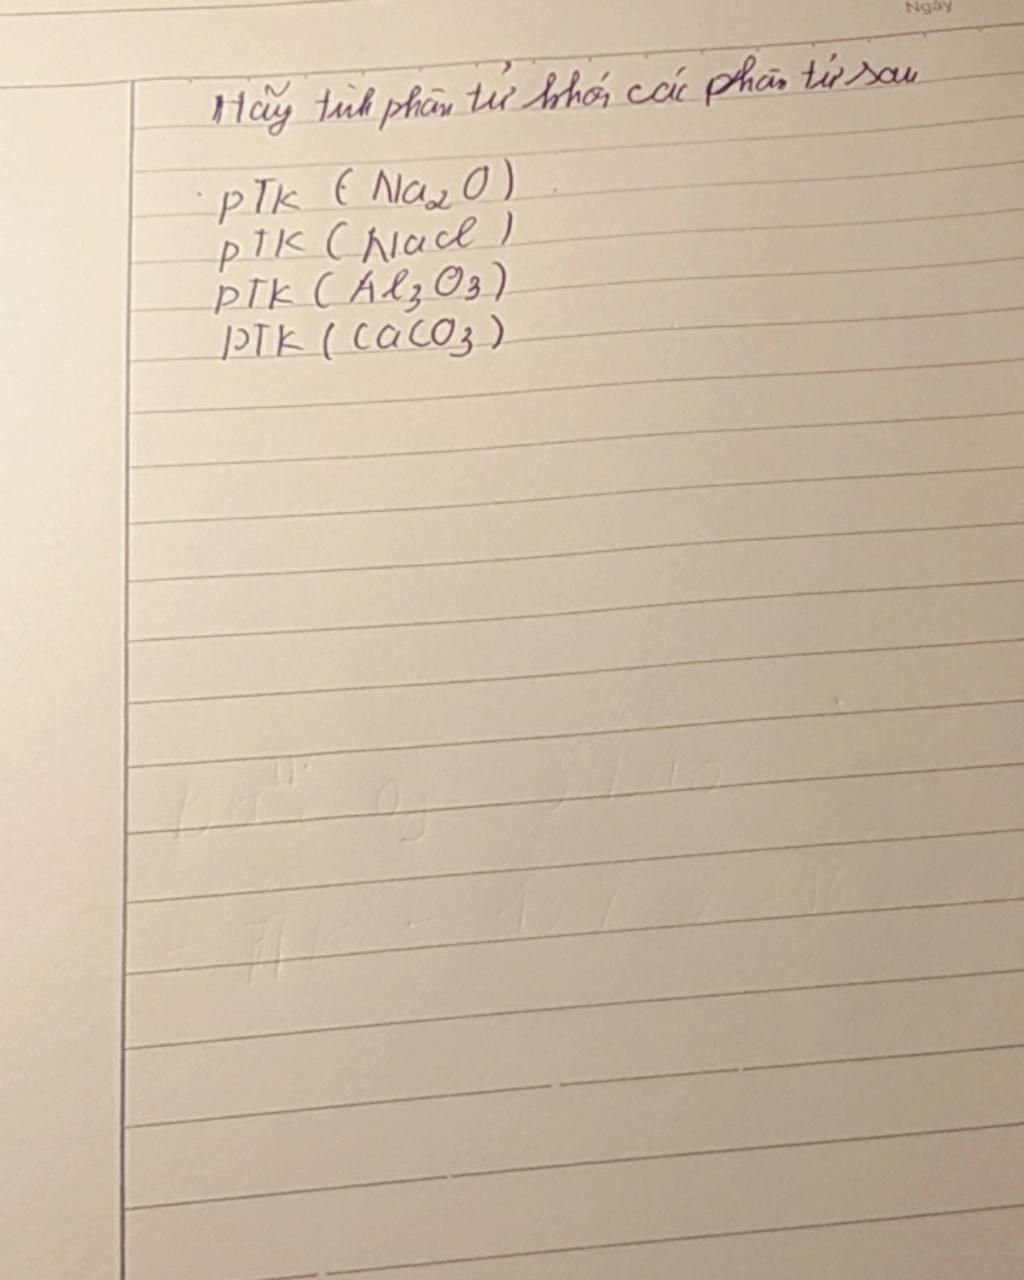 Ngày
Hãy tính phân tử khối các phân tử sau
PTK (Na₂O)
PTK (NaCl)
PTK (Al₃O₃)
PTK (CaCO₃)